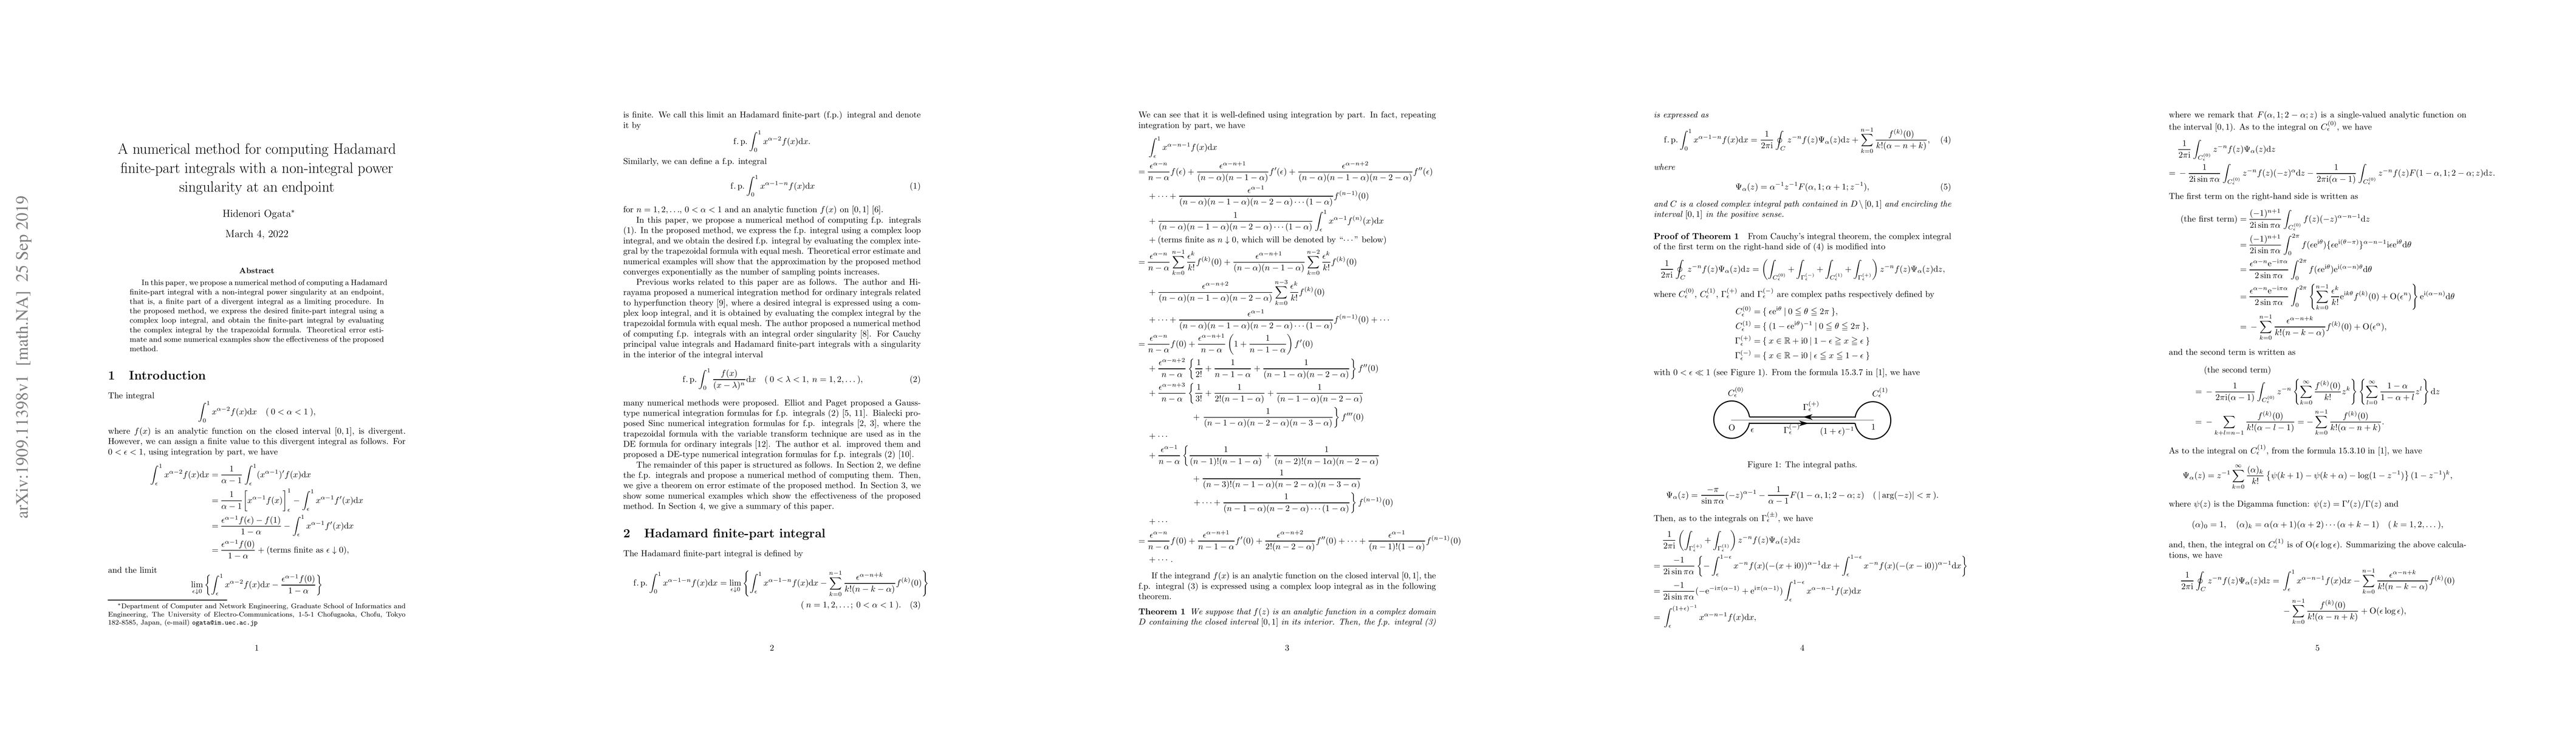 arXiv:1909.11398v1 [math.NA] 25 Sep 2019
A numerical method for computing Hadamard
finite-part integrals with a non-integral power
singularity at an endpoint
Hidenori Ogata*
March 4, 2022
Abstract
In this paper, we propose a numerical method of computing a Hadamard
finite-part integral with a non-integral power singularity at an endpoint,
that is, a finite part of a divergent integral as a limiting procedure. In
the proposed method, we express the desired finite-part integral using a
complex loop integral, and obtain the finite-part integral by evaluating
the complex integral by the trapezoidal formula. Theoretical error esti-
mate and some numerical examples show the effectiveness of the proposed
method.
1 Introduction
The integral
∫_0^1 x^{α−2} f(x)dx ( 0 < α < 1 ),
where f(x) is an analytic function on the closed interval [0, 1], is divergent.
However, we can assign a finite value to this divergent integral as follows. For
0 < ϵ < 1, using integration by part, we have
∫_ϵ^1 x^{α−2} f(x)dx = 1/(α−1) ∫_ϵ^1 (x^{α−1})′ f(x)dx
= 1/(α−1) [x^{α−1} f(x)]_ϵ^1 − ∫_ϵ^1 x^{α−1} f′(x)dx
= (ϵ^{α−1} f(ϵ) − f(1))/(1−α) − ∫_ϵ^1 x^{α−1} f′(x)dx
= ϵ^{α−1} f(0)/(1−α) + (terms finite as ϵ ↓ 0),
and the limit
lim_{ϵ↓0} { ∫_ϵ^1 x^{α−2} f(x)dx − ϵ^{α−1} f(0)/(1−α) }
*Department of Computer and Network Engineering, Graduate School of Informatics and
Engineering, The University of Electro-Communications, 1-5-1 Chofugaoka, Chofu, Tokyo
182-8585, Japan, (e-mail) ogata@im.uec.ac.jp
1
is finite. We call this limit an Hadamard finite-part (f.p.) integral and denote
it by
f. p. ∫_0^1 x^{α−2} f(x)dx.
Similarly, we can define a f.p. integral
f. p. ∫_0^1 x^{α−1−n} f(x)dx (1)
for n = 1, 2, . . ., 0 < α < 1 and an analytic function f(x) on [0, 1] [6].
In this paper, we propose a numerical method of computing f.p. integrals
(1). In the proposed method, we express the f.p. integral using a complex loop
integral, and we obtain the desired f.p. integral by evaluating the complex inte-
gral by the trapezoidal formula with equal mesh. Theoretical error estimate and
numerical examples will show that the approximation by the proposed method
converges exponentially as the number of sampling points increases.
Previous works related to this paper are as follows. The author and Hi-
rayama proposed a numerical integration method for ordinary integrals related
to hyperfunction theory [9], where a desired integral is expressed using a com-
plex loop integral, and it is obtained by evaluating the complex integral by the
trapezoidal formula with equal mesh. The author proposed a numerical method
of computing f.p. integrals with an integral order singularity [8]. For Cauchy
principal value integrals and Hadamard finite-part integrals with a singularity
in the interior of the integral interval
f. p. ∫_0^1 f(x)/(x−λ)^n dx ( 0 < λ < 1, n = 1, 2, . . . ), (2)
many numerical methods were proposed. Elliot and Paget proposed a Gauss-
type numerical integration formulas for f.p. integrals (2) [5, 11]. Bialecki pro-
posed Sinc numerical integration formulas for f.p. integrals [2, 3], where the
trapezoidal formula with the variable transform technique are used as in the
DE formula for ordinary integrals [12]. The author et al. improved them and
proposed a DE-type numerical integration formulas for f.p. integrals (2) [10].
The remainder of this paper is structured as follows. In Section 2, we define
the f.p. integrals and propose a numerical method of computing them. Then,
we give a theorem on error estimate of the proposed method. In Section 3, we
show some numerical examples which show the effectiveness of the proposed
method. In Section 4, we give a summary of this paper.
2 Hadamard finite-part integral
The Hadamard finite-part integral is defined by
f. p. ∫_0^1 x^{α−1−n} f(x)dx = lim_{ϵ↓0} { ∫_ϵ^1 x^{α−1−n} f(x)dx − ∑_{k=0}^{n−1} ϵ^{α−n+k}/(k!(n−k−α)) f^{(k)}(0) }
( n = 1, 2, . . . ; 0 < α < 1 ). (3)
2
We can see that it is well-defined using integration by part. In fact, repeating
integration by part, we have
∫_ϵ^1 x^{α−n−1} f(x)dx
= ϵ^{α−n}/(n−α) f(ϵ) + ϵ^{α−n+1}/((n−α)(n−1−α)) f′(ϵ) + ϵ^{α−n+2}/((n−α)(n−1−α)(n−2−α)) f′′(ϵ)
+ · · · + ϵ^{α−1}/((n−α)(n−1−α)(n−2−α) · · · (1−α)) f^{(n−1)}(0)
+ 1/((n−α)(n−1−α)(n−2−α) · · · (1−α)) ∫_ϵ^1 x^{α−1} f^{(n)}(x)dx
+ (terms finite as n ↓ 0, which will be denoted by “· · · ” below)
= ϵ^{α−n}/(n−α) ∑_{k=0}^{n−1} ϵ^k/k! f^{(k)}(0) + ϵ^{α−n+1}/((n−α)(n−1−α)) ∑_{k=0}^{n−2} ϵ^k/k! f^{(k)}(0)
+ ϵ^{α−n+2}/((n−α)(n−1−α)(n−2−α)) ∑_{k=0}^{n−3} ϵ^k/k! f^{(k)}(0)
+ · · · + ϵ^{α−1}/((n−α)(n−1−α)(n−2−α) · · · (1−α)) f^{(n−1)}(0) + · · ·
= ϵ^{α−n}/(n−α) f(0) + ϵ^{α−n+1}/(n−α) (1 + 1/(n−1−α)) f′(0)
+ ϵ^{α−n+2}/(n−α) { 1/2! + 1/(n−1−α) + 1/((n−1−α)(n−2−α)) } f′′(0)
+ ϵ^{α−n+3}/(n−α) { 1/3! + 1/(2!(n−1−α)) + 1/((n−1−α)(n−2−α))
+ 1/((n−1−α)(n−2−α)(n−3−α)) } f′′′(0)
+ · · ·
+ ϵ^{α−1}/(n−α) { 1/((n−1)!(n−1−α)) + 1/((n−2)!(n−1α)(n−2−α))
+ 1/((n−3)!(n−1−α)(n−2−α)(n−3−α))
+ · · · + 1/((n−1−α)(n−2−α) · · · (1−α)) } f^{(n−1)}(0)
+ · · ·
= ϵ^{α−n}/(n−α) f(0) + ϵ^{α−n+1}/(n−1−α) f′(0) + ϵ^{α−n+2}/(2!(n−2−α)) f′′(0) + · · · + ϵ^{α−1}/((n−1)!(1−α)) f^{(n−1)}(0)
+ · · · .
If the integrand f(x) is an analytic function on the closed interval [0, 1], the
f.p. integral (3) is expressed using a complex loop integral as in the following
theorem.
Theorem 1 We suppose that f(z) is an analytic function in a complex domain
D containing the closed interval [0, 1] in its interior. Then, the f.p. integral (3)
3
is expressed as
f. p. ∫_0^1 x^{α−1−n} f(x)dx = 1/(2πi) ∮_C z^{−n} f(z)Ψ_α(z)dz + ∑_{k=0}^{n−1} f^{(k)}(0)/(k!(α−n+k)), (4)
where
Ψ_α(z) = α^{−1} z^{−1} F(α, 1; α + 1; z^{−1}), (5)
and C is a closed complex integral path contained in D \ [0, 1] and encircling the
interval [0, 1] in the positive sense.
Proof of Theorem 1 From Cauchy's integral theorem, the complex integral
of the first term on the right-hand side of (4) is modified into
1/(2πi) ∮_C z^{−n} f(z)Ψ_α(z)dz = ( ∫_{C_ϵ^{(0)}} + ∫_{Γ_ϵ^{(−)}} + ∫_{C_ϵ^{(1)}} + ∫_{Γ_ϵ^{(+)}} ) z^{−n} f(z)Ψ_α(z)dz,
where C_ϵ^{(0)}, C_ϵ^{(1)}, Γ_ϵ^{(+)} and Γ_ϵ^{(−)} are complex paths respectively defined by
C_ϵ^{(0)} = { ϵe^{iθ} | 0 ≦ θ ≦ 2π },
C_ϵ^{(1)} = { (1 − ϵe^{iθ})^{−1} | 0 ≦ θ ≦ 2π },
Γ_ϵ^{(+)} = { x ∈ ℝ + i0 | 1 − ϵ ≧ x ≧ ϵ }
Γ_ϵ^{(−)} = { x ∈ ℝ − i0 | ϵ ≦ x ≦ 1 − ϵ }
with 0 < ϵ ≪ 1 (see Figure 1). From the formula 15.3.7 in [1], we have
C_ϵ^{(0)} C_ϵ^{(1)}
Γ_ϵ^{(+)}
O ϵ Γ_ϵ^{(−)} (1 + ϵ)^{−1} 1
Figure 1: The integral paths.
Ψ_α(z) = −π/(sin πα) (−z)^{α−1} − 1/(α−1) F(1 − α, 1; 2 − α; z) ( | arg(−z)| < π ).
Then, as to the integrals on Γ_ϵ^{(±)}, we have
1/(2πi) ( ∫_{Γ_ϵ^{(−)}} + ∫_{Γ_ϵ^{(+)}} ) z^{−n} f(z)Ψ_α(z)dz
= −1/(2i sin πα) { − ∫_ϵ^{1−ϵ} x^{−n} f(x)(−(x + i0))^{α−1} dx + ∫_ϵ^{1−ϵ} x^{−n} f(x)(−(x − i0))^{α−1} dx }
= −1/(2i sin πα) (−e^{−iπ(α−1)} + e^{iπ(α−1)}) ∫_ϵ^{1−ϵ} x^{α−n−1} f(x)dx
= ∫_ϵ^{(1+ϵ)^{−1}} x^{α−n−1} f(x)dx,
4
where we remark that F(α, 1; 2 − α; z) is a single-valued analytic function on
the interval [0, 1). As to the integral on C_ϵ^{(0)}, we have
1/(2πi) ∫_{C_ϵ^{(0)}} z^{−n} f(z)Ψ_α(z)dz
= − 1/(2i sin πα) ∫_{C_ϵ^{(0)}} z^{−n} f(z)(−z)^α dz − 1/(2πi(α−1)) ∫_{C_ϵ^{(0)}} z^{−n} f(z)F(1 − α, 1; 2 − α; z)dz.
The first term on the right-hand side is written as
(the first term) = (−1)^{n+1}/(2i sin πα) ∫_{C_ϵ^{(0)}} f(z)(−z)^{α−n−1} dz
= (−1)^{n+1}/(2i sin πα) ∫_0^{2π} f(ϵe^{iθ}){ϵe^{i(θ−π)}}^{α−n−1} iϵe^{iθ} dθ
= ϵ^{α−n} e^{−iπα}/(2 sin πα) ∫_0^{2π} f(ϵe^{iθ})e^{i(α−n)θ} dθ
= ϵ^{α−n} e^{−iπα}/(2 sin πα) ∫_0^{2π} { ∑_{k=0}^{n−1} ϵ^k/k! e^{ikθ} f^{(k)}(0) + O(ϵ^n) } e^{i(α−n)θ} dθ
= − ∑_{k=0}^{n−1} ϵ^{α−n+k}/(k!(n−k−α)) f^{(k)}(0) + O(ϵ^α),
and the second term is written as
(the second term)
= − 1/(2πi(α−1)) ∫_{C_ϵ^{(0)}} z^{−n} { ∑_{k=0}^∞ f^{(k)}(0)/k! z^k } { ∑_{l=0}^∞ (1−α)/(1−α+l) z^l } dz
= − ∑_{k+l=n−1} f^{(k)}(0)/(k!(α−l−1)) = − ∑_{k=0}^{n−1} f^{(k)}(0)/(k!(α−n+k)).
As to the integral on C_ϵ^{(1)}, from the formula 15.3.10 in [1], we have
Ψ_α(z) = z^{−1} ∑_{k=0}^∞ (α)_k/k! {ψ(k + 1) − ψ(k + α) − log(1 − z^{−1})} (1 − z^{−1})^k,
where ψ(z) is the Digamma function: ψ(z) = Γ′(z)/Γ(z) and
(α)_0 = 1, (α)_k = α(α + 1)(α + 2) · · · (α + k − 1) ( k = 1, 2, . . . ),
and, then, the integral on C_ϵ^{(1)} is of O(ϵ log ϵ). Summarizing the above calcula-
tions, we have
1/(2πi) ∮_C z^{−n} f(z)Ψ_α(z)dz = ∫_ϵ^1 x^{α−n−1} f(x)dx − ∑_{k=0}^{n−1} ϵ^{α−n+k}/(k!(n−k−α)) f^{(k)}(0)
− ∑_{k=0}^{n−1} f^{(k)}(0)/(k!(α−n+k)) + O(ϵ log ϵ),
5